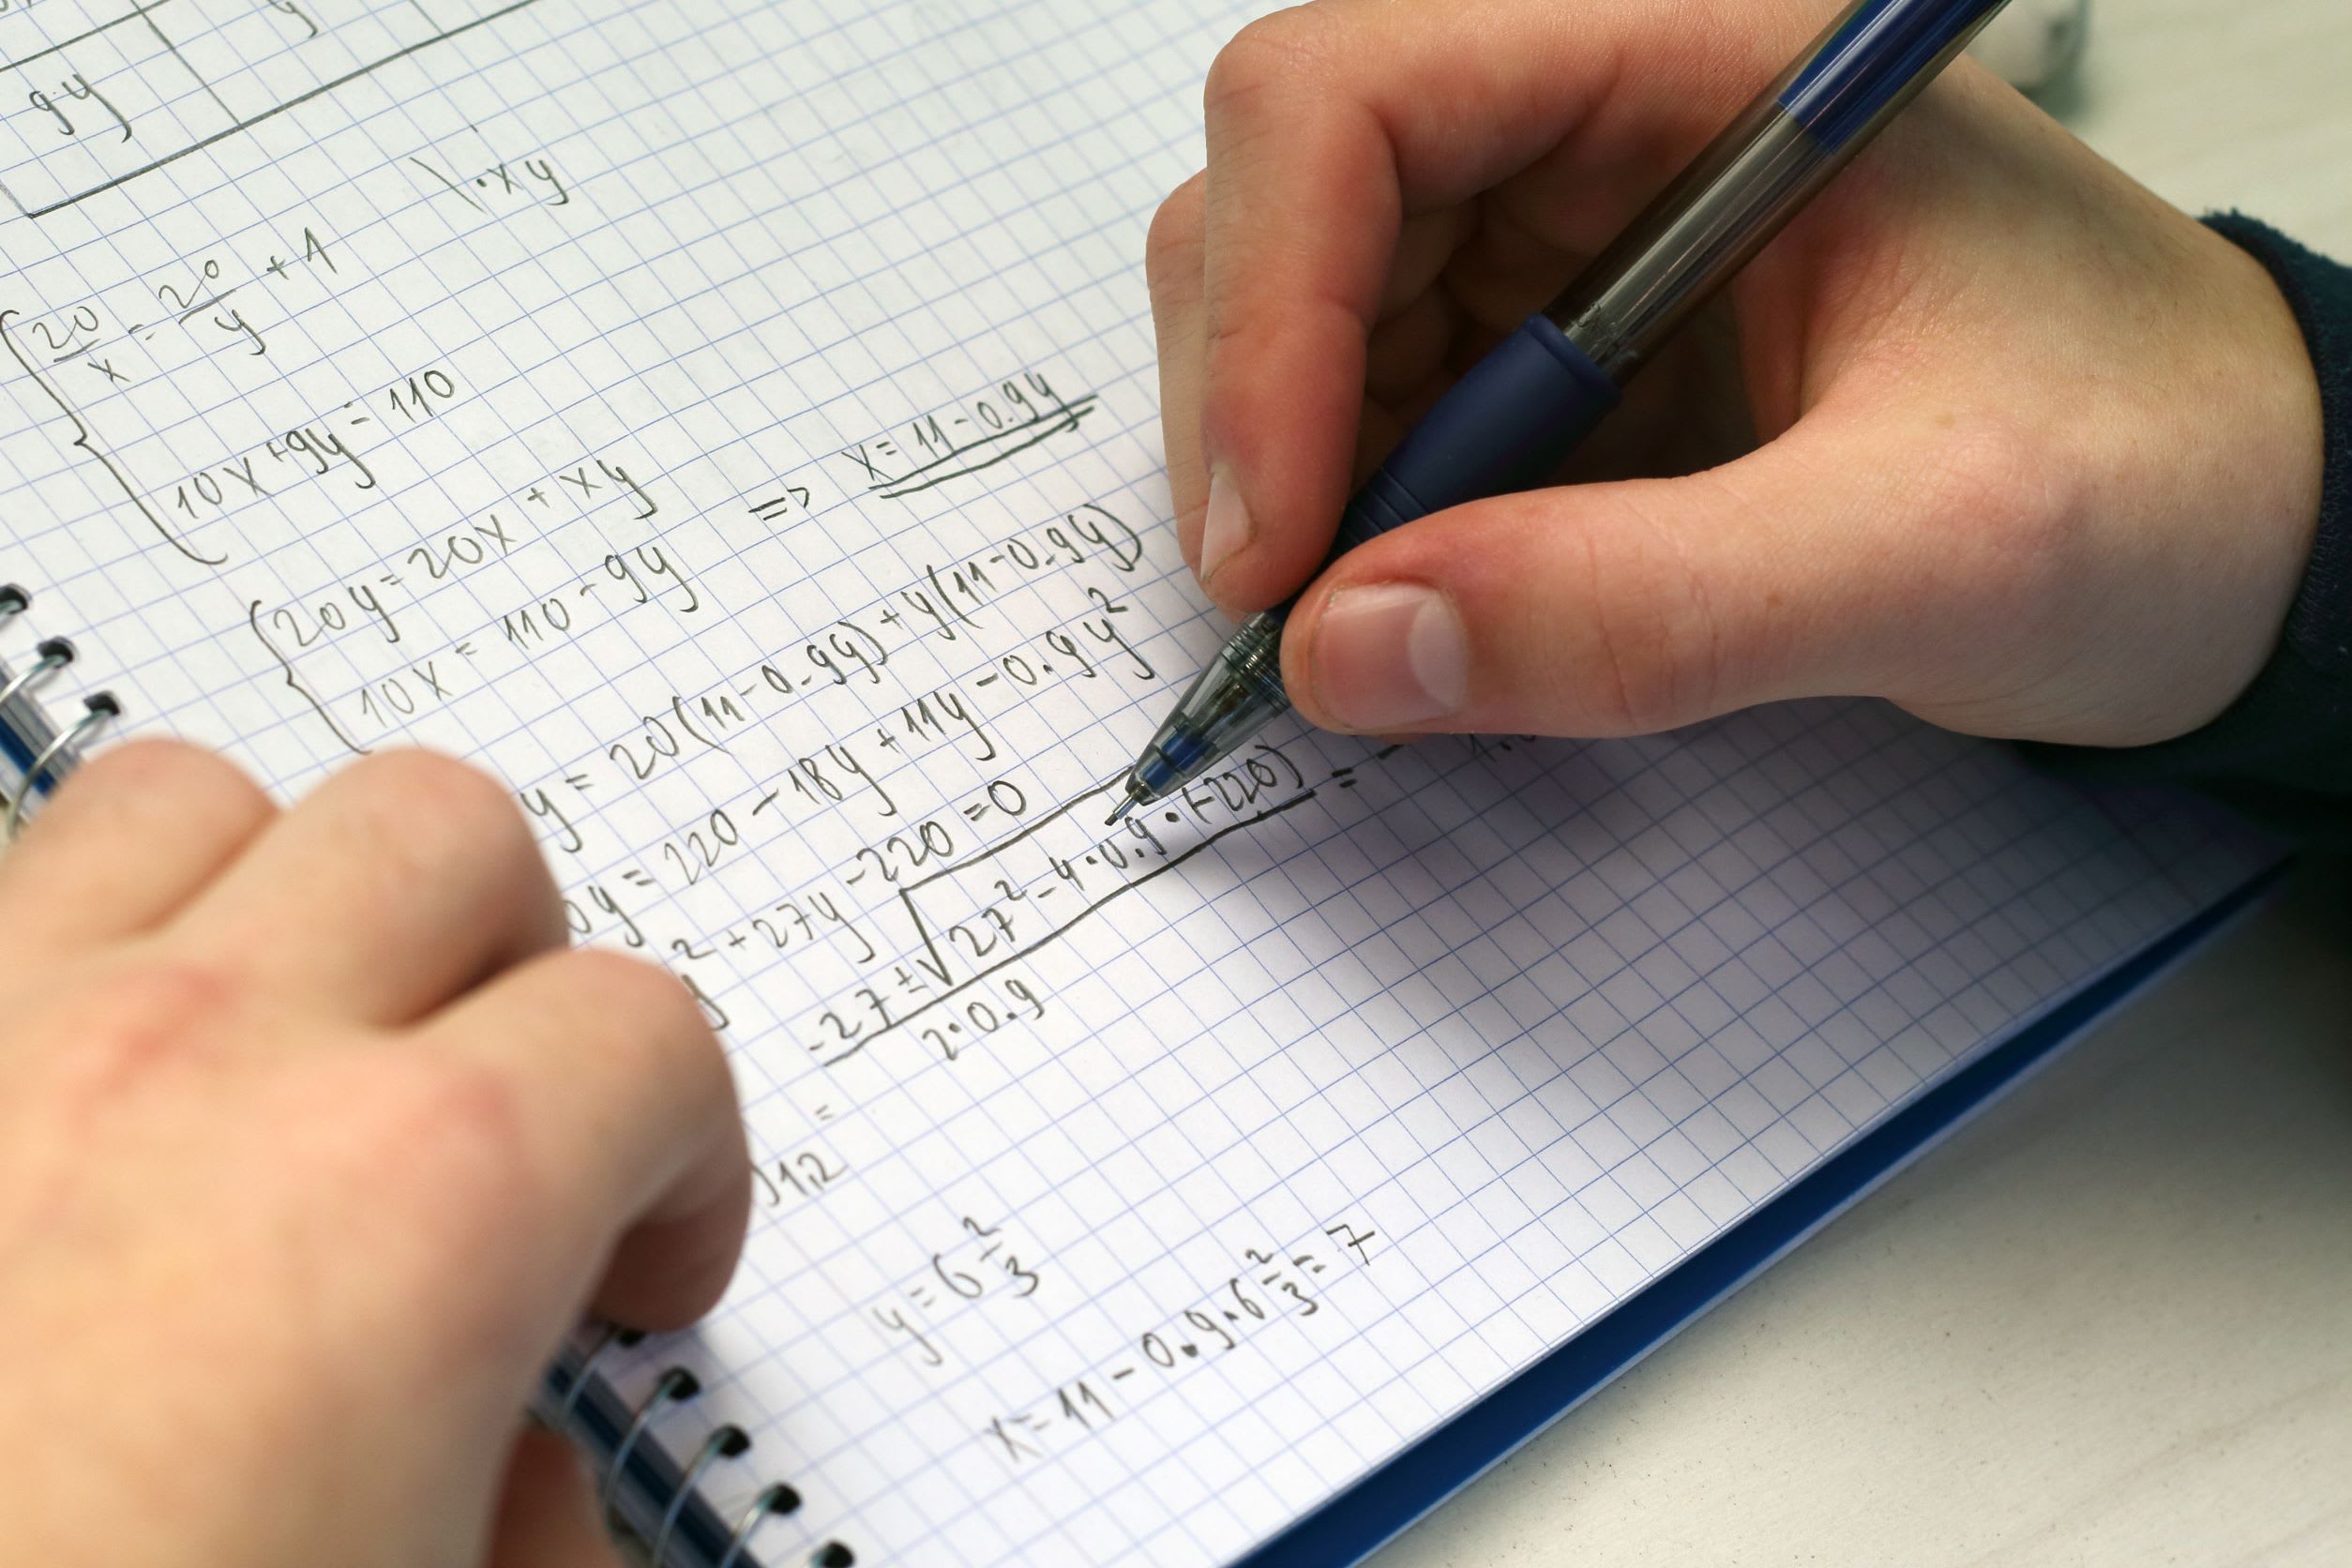 y
9y
\·xy
20/x = 20/y + 1
10x+9y=110
20y=20x+xy
10x=110-9y => x=11-0.9y
y=20(11-0.9y)+y(11-0.9y)
0y=220-18y+11y-0.9y²
²+27y-220=0
-27±√27²-4·0.9·(-220) / 2·0.9 =
1,2 =
y=6 2/3
x=11-0.9·6 2/3=7